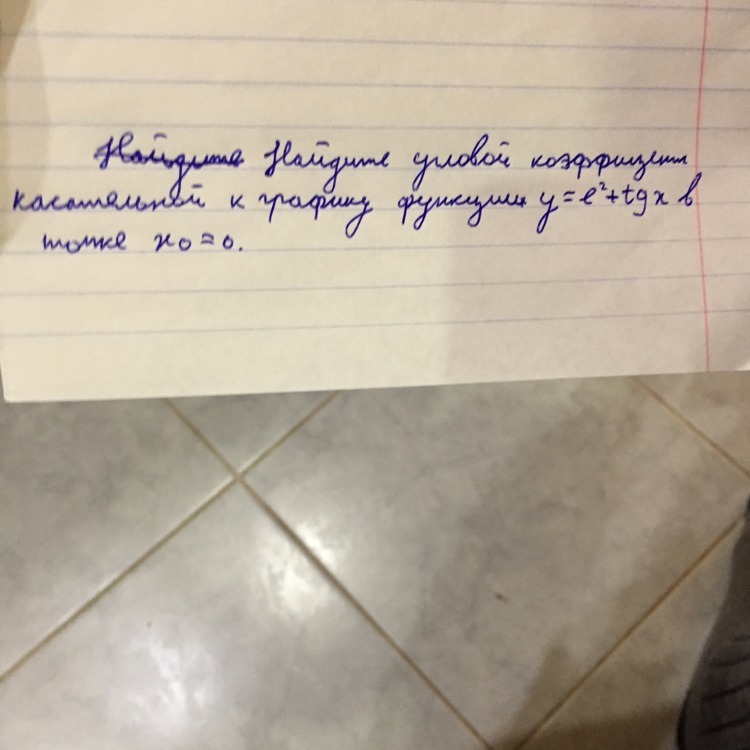 Найдите Найдите угловой коэффициент
касательной к графику функции y=e²+tgx в
точке x₀=0.